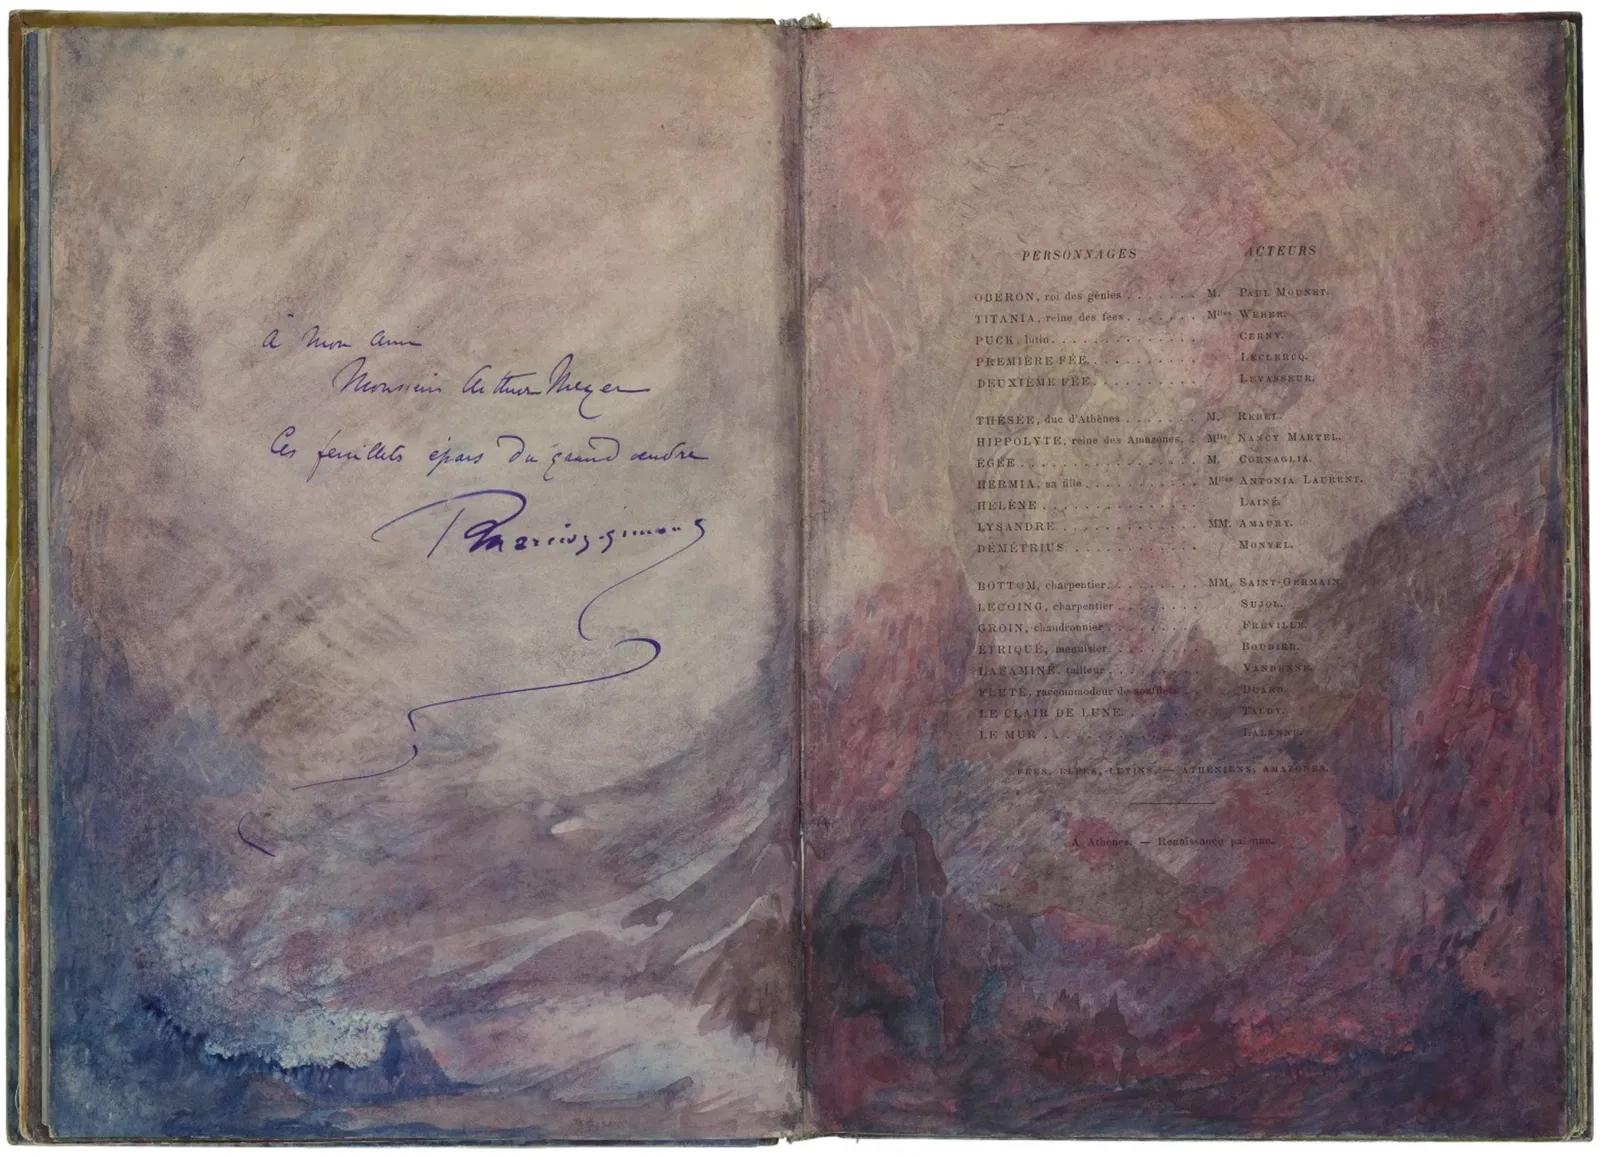 à mon ami
Monsieur Arthur Meyer
Ces feuillets épars du grand œuvre
PERSONNAGES ACTEURS
OBERON, roi des génies . . . . . . . M. PAUL MOUNET.
TITANIA, reine des fées . . . . . . . Mlles WEBER.
PUCK, lutin. . . . . . . . . . . . . . CERNY.
PREMIÈRE FÉE. . . . . . . . . . . LECLERCQ.
DEUXIÈME FÉE. . . . . . . . . . . LEVASSEUR.
THÉSÉE, duc d'Athènes . . . . . . . M. REBEL.
HIPPOLYTE, reine des Amazones. . Mlle NANCY MARTEL.
ÉGÉE . . . . . . . . . . . . . . . . . M. CORNAGLIA.
HERMIA, sa fille . . . . . . . . . . . Mlles ANTONIA LAURENT.
HÉLÈNE . . . . . . . . . . . . . . . LAINÉ.
LYSANDRE . . . . . . . . . . . . . MM. AMAURY.
DÉMÉTRIUS . . . . . . . . . . . . MONVEL.
BOTTOM, charpentier. . . . . . . . . MM. SAINT-GERMAIN.
LECOING, charpentier . . . . . . . . SUJOL.
GROIN, chaudronnier . . . . . . . . . FRÉVILLE.
ÉTRIQUÉ, menuisier. . . . . . . . . BOUDIER.
LAFAMINE, tailleur . . . . . . . . . VANDENNE.
FLUTE, raccommodeur de soufflets . . DUARD.
LE CLAIR DE LUNE. . . . . . . . TALDY.
LE MUR . . . . . . . . . . . . . . .
FÉES, ELFES, LUTINS. — ATHÉNIENS, AMAZONES.
A Athènes. — Renaissance païenne.